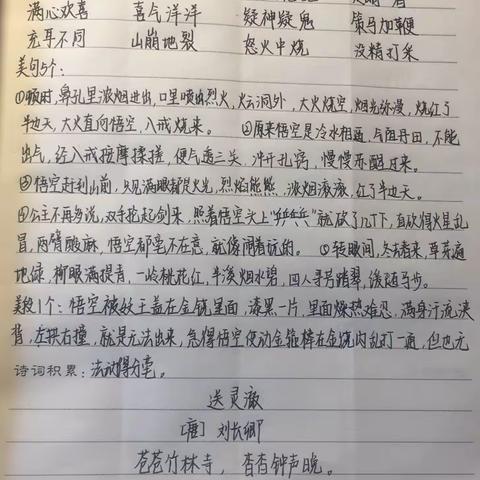 满心欢喜 喜气洋洋 疑神疑鬼 策马加鞭
充耳不同 山崩地裂 怒火中烧 没精打采
美句5个:
①顿时,鼻孔里浓烟迸出,口里喷出烈火,火云洞外,大火烧空,烟光弥漫,烧红了
半边天,大火直向悟空,八戒烧来。 ②原来悟空是冷水相逼,气阻丹田,不能
出气,经八戒按摩揉搓,便气透三关,冲开孔窍,慢慢苏醒过来。
③悟空赶到山前,只见满眼都是火光,烈焰熊熊,浓烟滚滚,红了半边天。
④公主不再多说,双手抡起剑来,照着悟空头上"乒乒乓乓"就砍了几下,直砍得火星乱
冒,两臂酸麻,悟空却毫不在意,就像闹着玩的。 ⑤转眼间,冬去春来,草芽遍
地绿,柳眼满堤青,一岭桃花红,半溪烟水碧,四人寻芳踏翠,缓随马步。
美段1个:悟空被妖王盖在金铙里面,漆黑一片,里面燥热难忍,满身汗流浃
背,左拱右撞,就是无法出来,急得悟空使动金箍棒在金铙内乱打一通,但也无
诗词积累:法动得分毫。
送灵澈
[唐] 刘长卿
苍苍竹林寺,杳杳钟声晚。